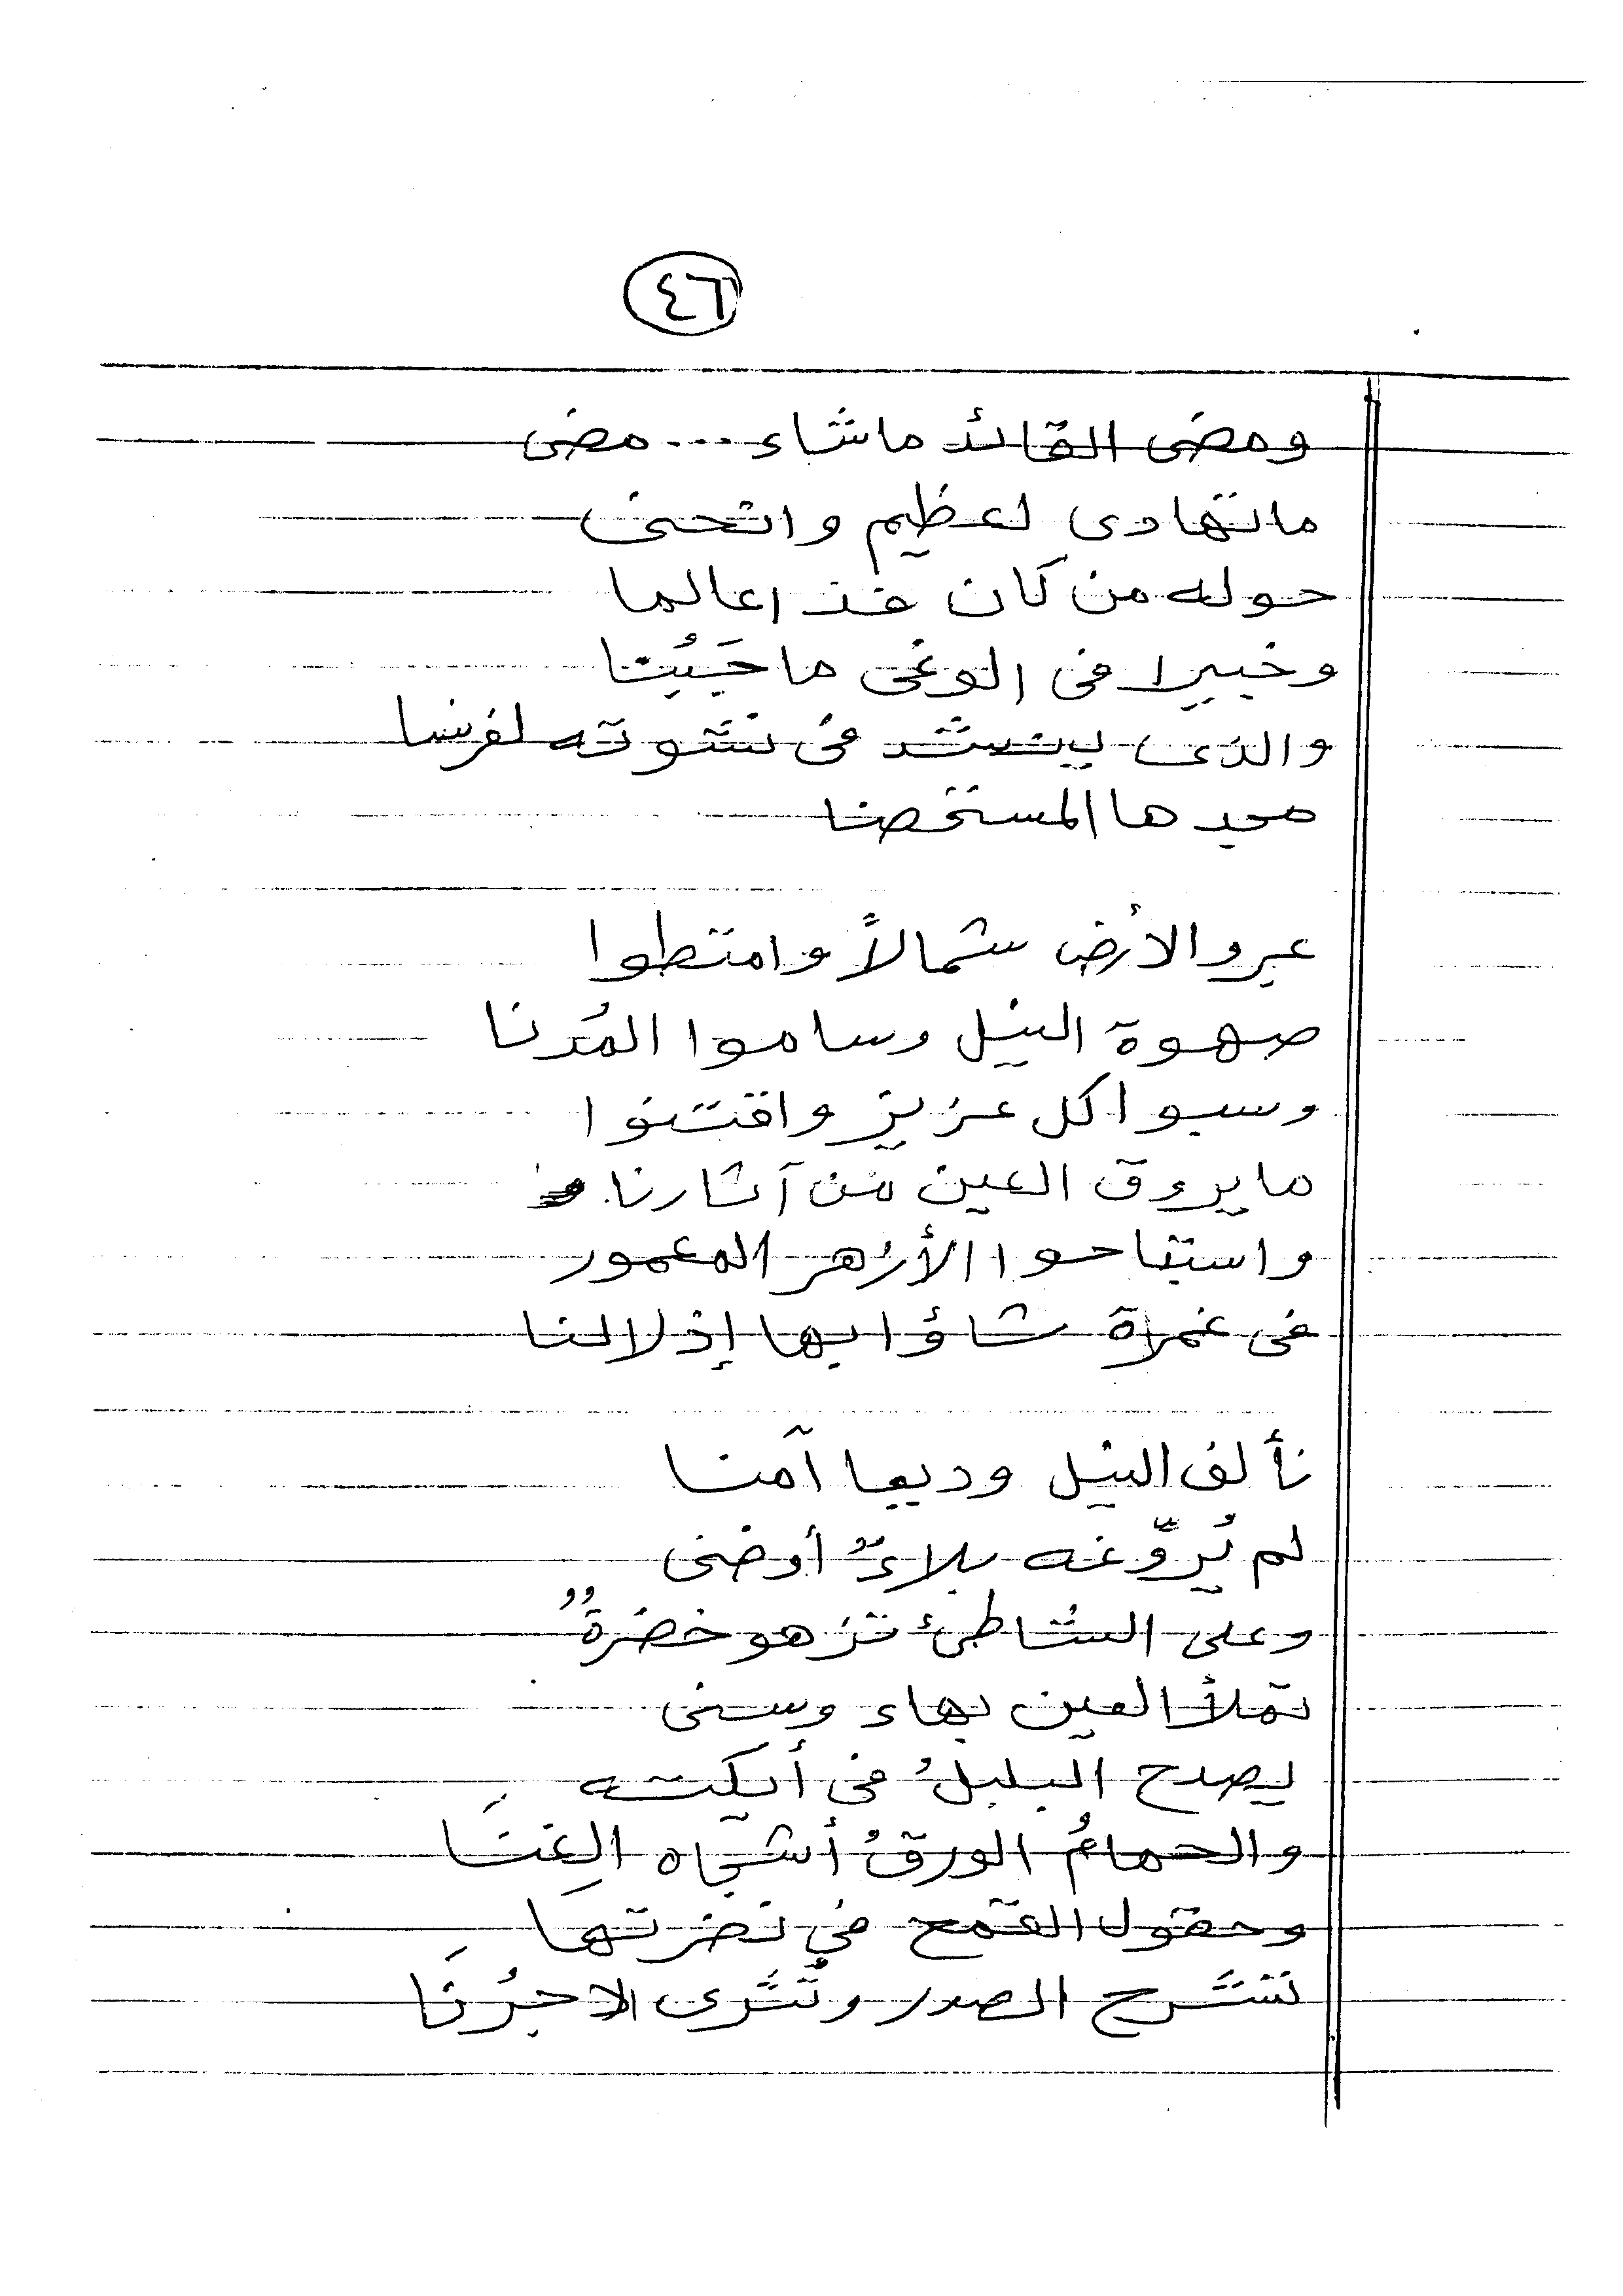 ٤٦
ومضى القائد ماشاء ... مضى
ماتهادى لعظيم وانحنى
حوله من كان فذا عالما
وخبيرا فى الوغى ما جَبُنا
والذى ينشد فى نشوته لفرنسا
مجدها المستحصنا
عبروا الأرض شمالاً وامتطوا
صهوة النيل وساموا المُدنا
وسبوا كل عزيز واقتنوا
ما يروق العين من آثارنا
واستباحوا الأزهر المعمور
فى غمرة شاؤا بها إذلالنا
نألف النيل وديعا آمنا
لم يُروّعه بلاءٌ أوضنى
وعلى الشاطئ تزهو خضرةٌ
تملأ العين بهاء وسنى
يصدح البلبلُ فى أيكته
والحمامُ الورقُ أشجاه الغِنَا
وحقول القمح فى نضرتها
تشرح الصدر وتُثرى الاجرُنَا